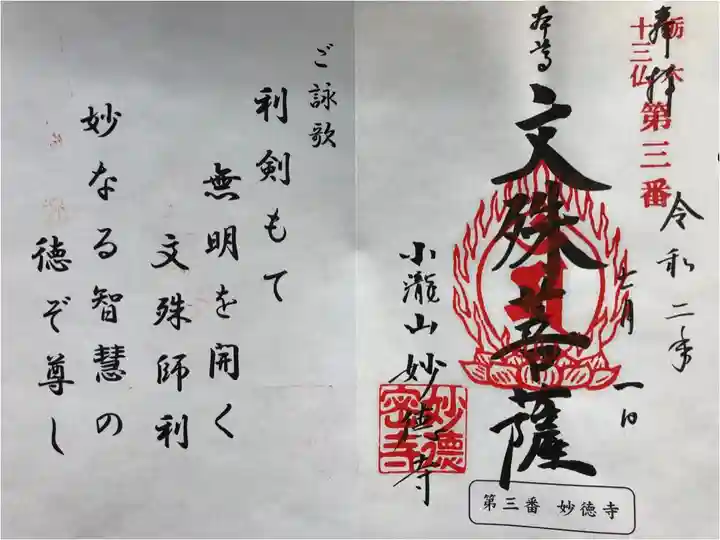 奉拝
栃木
十三仏 第三番
令和二年
七月一日
本尊
文殊菩薩
小瀧山妙徳寺
妙徳
密寺
第三番 妙徳寺
ご詠歌
利剣もて
無明を開く
文殊師利
妙なる智慧の
徳ぞ尊し